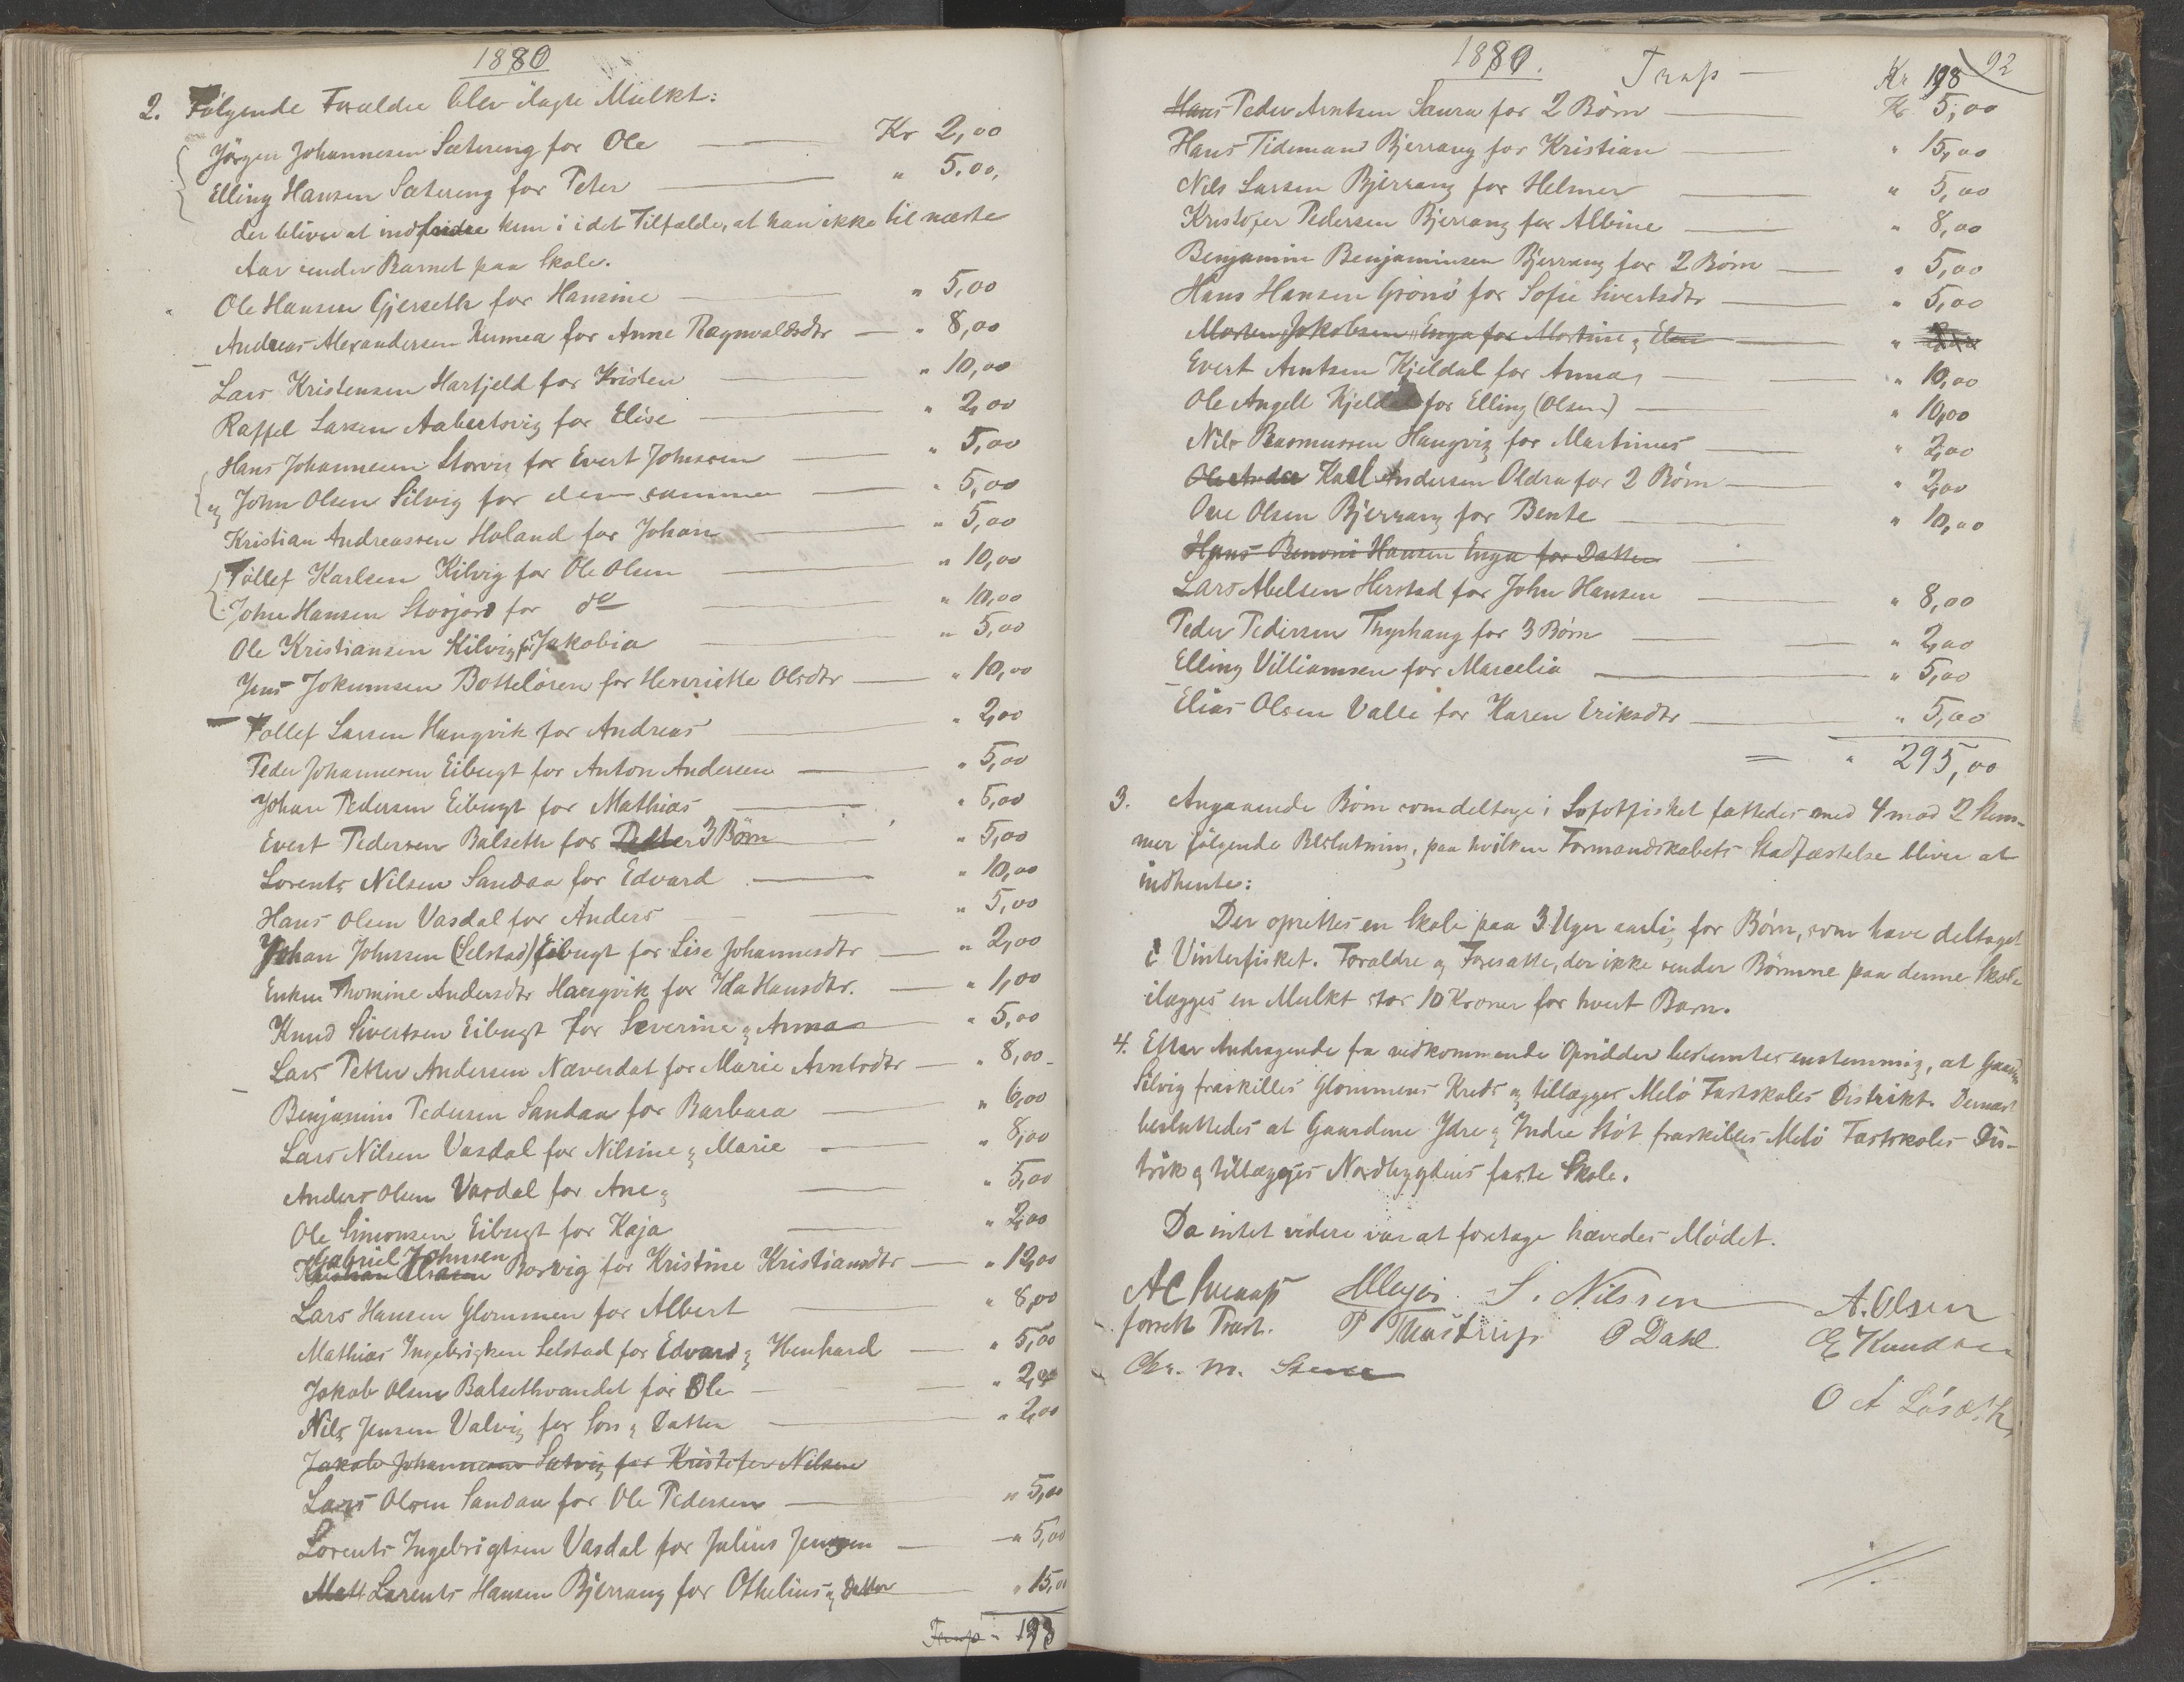 1880
2. Følgende Forældre blev ilagte Mulkt:
Jörgen Johannesen Sætereng for Ole — Kr 2,00
Elling Hansen Sætereng for Peter — " 5,00,
der bliver at indfordre kun i i det Tilfælde, at han ikke til næste
Aar sender Barnet paa Skole.
Ole Hansen Gjerseth for Hansine — " 5,00
Andreas Alexandersen Kumea for Anne Ragnvaldsdtr — " 8,00
Lars Kristensen Harfjeld for Kristen — " 10,00
Raffel Larsen Aabertsvig for Elise — " 2,00
Hans Johannesen Storvig for Evert Johnsen — " 5,00
og John Olsen Silvig for densamme — " 5,00
Kristian Andreassen Holand for Johan — " 5,00
Tollef Karlsen Kilvig for Ole Olsen — " 10,00
John Hansen Storjord for do — " 10,00
Ole Kristiansen Kilvig for Jakobia — " 5,00
Jens Jokumsen Botteloren for Henriette Olsdtr — " 10,00
Tollef Larsen Haugvik for Andreas — " 2,00
Peder Johannesen Eibugt for Anton Andersen — " 5,00
Johan Pedersen Eibugt for Mathias — " 5,00
Evert Pedersen Balseth for Datter 3 Börn — " 5,00
Lorents Nilsen Sandaa for Edvard — " 10,00
Hans Olsen Vasdal for Anders — " 5,00
Johan Johnsen (Selstad) Eibugt for Lise Johannesdtr — " 2,00
Enken Thomine Andersdtr Haugvik for Ida Hansdtr. — " 1,00
Knud Sivertsen Eibugt for Severine og Anna — " 5,00
Lars Petter Andersen Næverdal for Marie Arntsdtr — " 8,00 -
Benjamin Pedersen Sandaa for Barbara — " 6,00
Lars Nilsen Vasdal for Nilsine og Marie — " 8,00
Anders Olsen Vasdal for Ane — " 5,00
Ole Simonsen Eibugt for Kaja — " 2,00
Gabriel Johnsen
Kristian Olsen Borvig for Kristine Kristiansdtr — " 12,00
Lars Hansen Glommen for Albert — " 8,00
Mathias Ingebrigtsen Selstad for Edvard og Henhard — " 5,00
Jakob Olsen Balsethvandet for Ole — " 2,00
Nils Jensen Valvig for Søn og Datter — " 2,00
Jakob Johannesen Sætvig for Kristofer Nilsen
Lars Olsen Sandaa for Ole Pedersen — " 5,00
Lorents Ingebrigtsen Vasdal for Julius Jensen — " 5,00
Matt Lorents Hansen Bjerrang for Othelius og Datter — " 15,00
Trsp - 198
1880. Trsp — Kr 198 92
Hans Peder Arntsen Saura for 2 Börn — Kr 5,00
Hans Tidemand Bjerrang for Kristian — " 15,00
Nils Larsen Bjerrang for Helmer — " 5,00
Kristofer Pedersen Bjerrang for Albine — " 8,00
Benjamin Benjaminsen Bjerrang for 2 Börn — " 5,00
Hans Hansen Grönö for Sofie Sivertsdtr — " 5,00
Morten Jakobsen Enga for Martine og Elen — "
Evert Arntsen Kjeldal for Anna — " 10,00
Ole Angell Kjeldal for Elling (Olsen) — " 10,00
Nils Rasmussen Haugvig for Martinus — " 2,00
Ole Ander Karl Andersen Oldra for 2 Börn — " 2,00
Ove Olsen Bjerrang for Bente — " 10,00
Hans Benoni Hansen Enga for Datter —
Lars Abelsen Herstad for John Hansen — " 8,00
Peder Pedersen Thyshaug for 3 Börn — " 2,00
Elling Villiamsen for Marcelia — " 5,00
Elias Olsen Valle for Karen Eriksdtr — " 5,00
= " 295,00
3. Angaaende Børn som deltage i Lofotfisket fattedes med 4 mod 2 Stem-
mer følgende Beslutning, paa hvilken Formandskabets Stadfæstelse bliver at
indhente:
Der oprettes en Skole paa 3 Uger aarlig for Børn, som have deltaget
i Vinterfisket. Forældre og Foresatte, der ikke sender Børnene paa denne Skole
ilægges en Mulkt stor 10 Kroner for hvert Barn.
4. Efter Andragende fra vedkommende Opsidder bestemtes enstemmig, at Gaarden
Silvig fraskilles Glommens Kreds og tillægges Melö Fastskoles Distrikt. Dernæst
besluttedes at Gaardene Ydre og Indre Stöt fraskilles Melö Fastskoles Dis-
trik og tillægges Nordbygdens faste Skole.
Da intet videre var at foretage hævedes Mødet.
S. Nilssen A. Olsen
P Thustrup O Dahl E Knudsen
Chr. M. Stene
O A Løseth